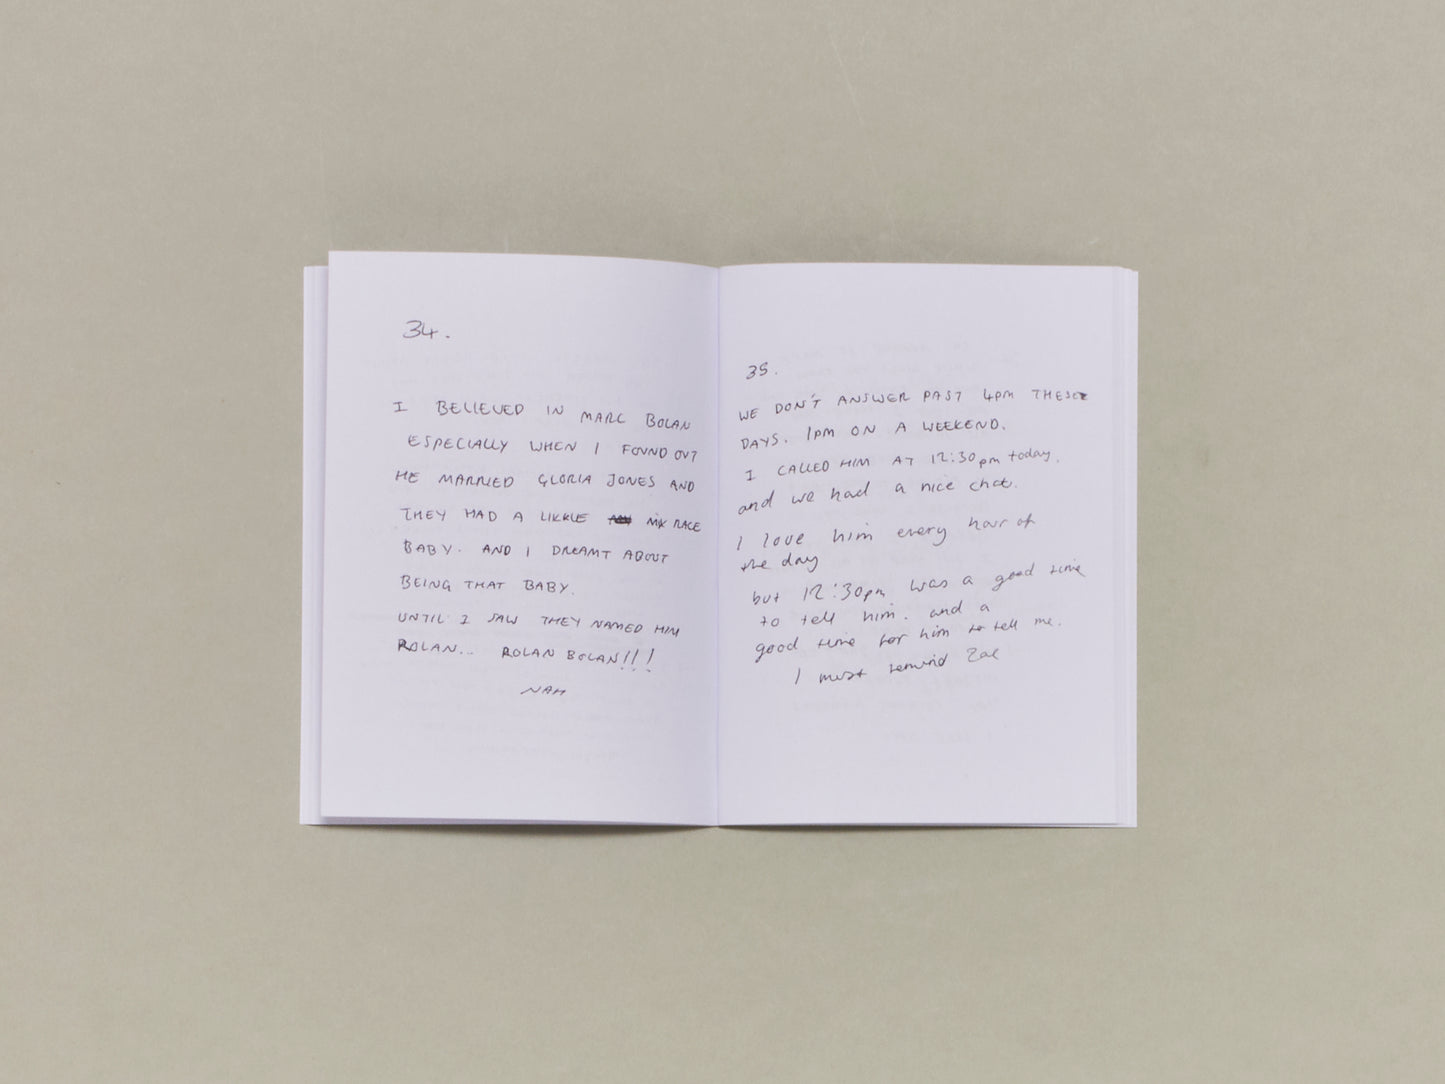 34.
I BELIEVED IN MARC BOLAN
ESPECIALLY WHEN I FOUND OUT
HE MARRIED GLORIA JONES AND
THEY HAD A LIKKLE MIX RACE
BABY. AND I DREAMT ABOUT
BEING THAT BABY.
UNTIL I SAW THEY NAMED HIM
ROLAN... ROLAN BOLAN!!!
NAH
35.
WE DON'T ANSWER PAST 4PM THESE
DAYS. 1PM ON A WEEKEND.
I CALLED HIM AT 12:30pm today.
and we had a nice chat.
I love him every hour of
the day
but 12:30pm was a good time
to tell him. and a
good time for him to tell me.
I must remind Zac